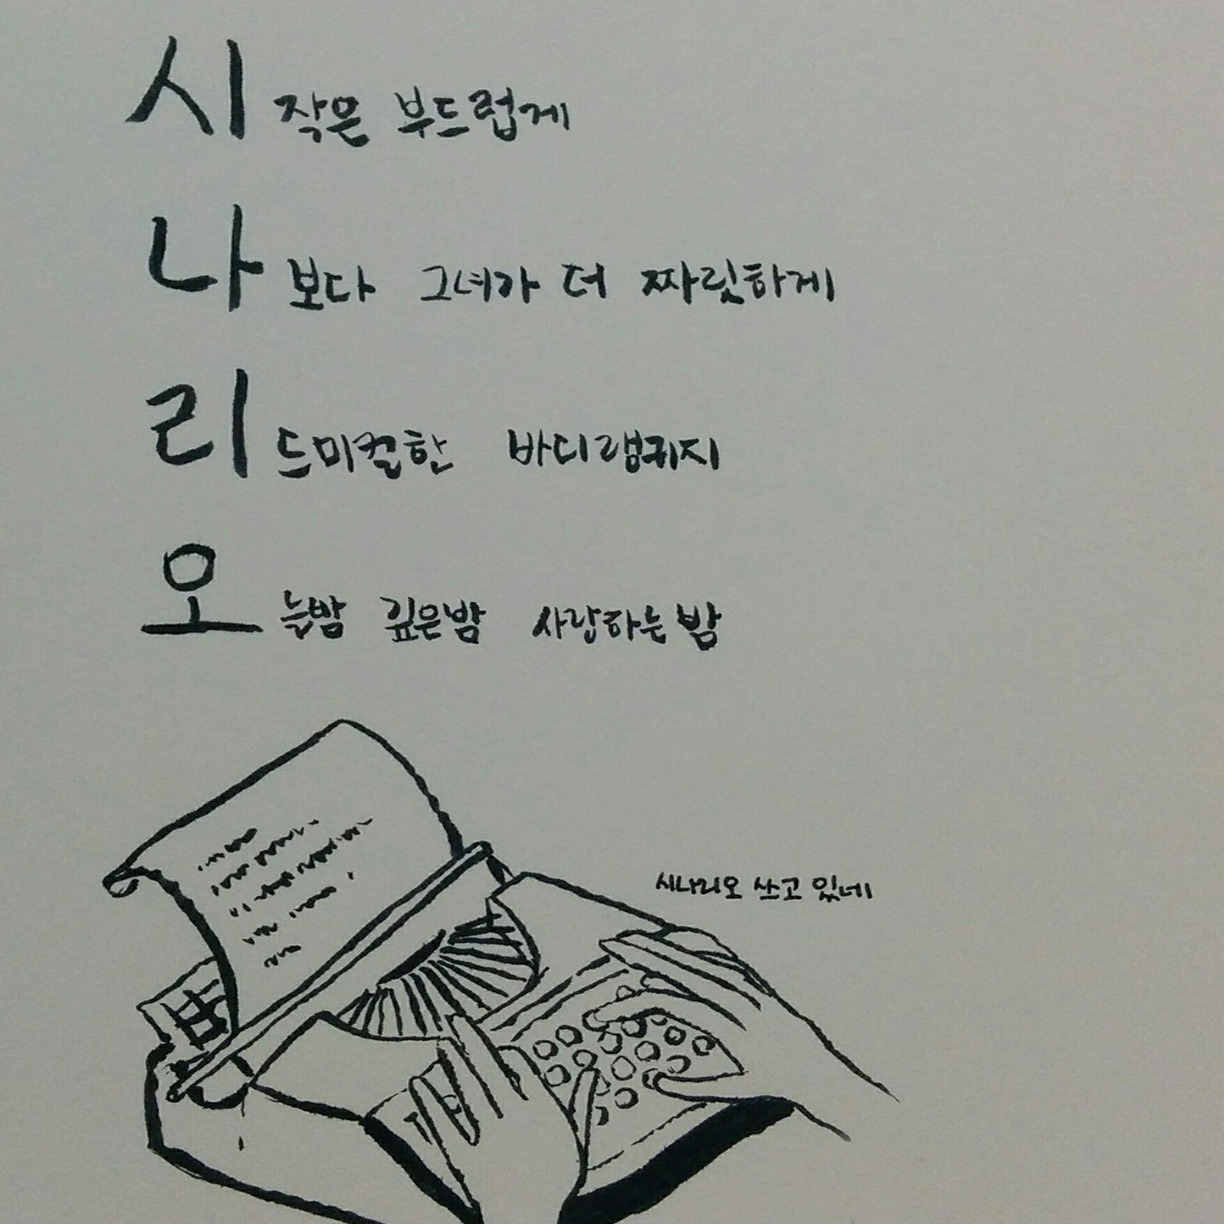 시작은 부드럽게
나보다 그녀가 더 짜릿하게
리드미컬한 바디랭귀지
오늘밤 깊은밤 사랑하는 밤
시나리오 쓰고 있네